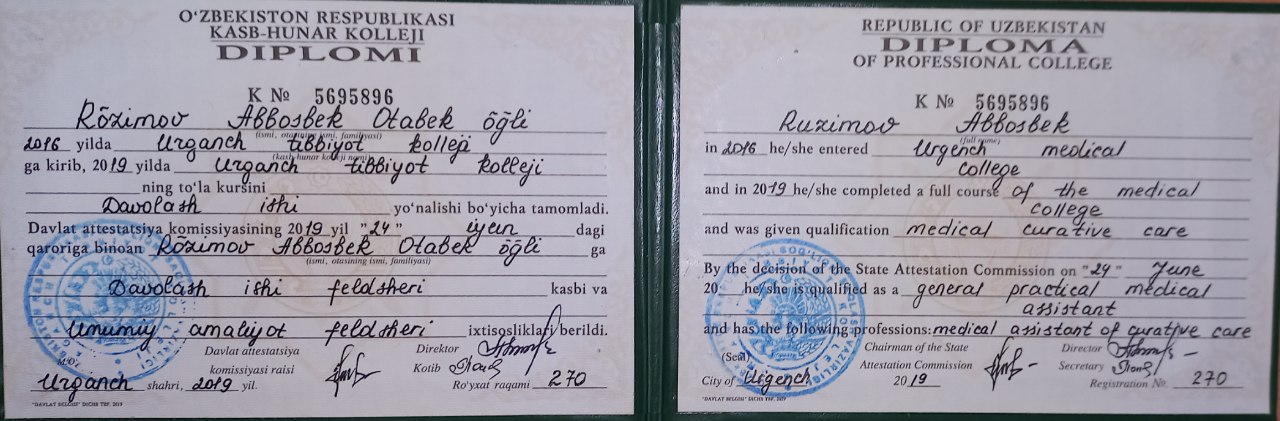 O‘ZBEKISTON RESPUBLIKASI
KASB-HUNAR KOLLEJI
DIPLOMI
K № 5695896
Rõzimov Abbosbek Otabek õğli
(ismi, otasining ismi, familiyasi)
2016 yilda Urganch tibbiyot kolleji
(kasb-hunar kolleji nomi)
ga kirib, 2019 yilda Urganch tibbiyot kolleji
ning to‘la kursini
Davolash ishi yo‘nalishi bo‘yicha tamomladi.
Davlat attestatsiya komissiyasining 2019 yil "24" iyun dagi
qaroriga binoan Rõzimov Abbosbek Otabek õğli ga
(ismi, otasining ismi, familiyasi)
Davolash ishi feldsheri kasbi va
Umumiy amaliyot feldsheri ixtisosliklari berildi.
M.O‘.
Davlat attestatsiya
komissiyasi raisi
Direktor
Kotib
Urganch shahri, 2019 yil.
Ro‘yxat raqami 270
"DAVLAT BELGISI" DICHB TBF. 2019
REPUBLIC OF UZBEKISTAN
DIPLOMA
OF PROFESSIONAL COLLEGE
K № 5695896
Ruzimov Abbosbek
(full name)
in 2016 he/she entered Urgench medical
college
and in 2019 he/she completed a full course of the medical
college
and was given qualification medical curative care
By the decision of the State Attestation Commission on "24" June
20 he/she is qualified as a general practical medical
assistant
and has the following professions: medical assistant of curative care
(Seal)
Chairman of the State
Attestation Commission
Director
Secretary
City of Urgench
2019
Registration № 270
"DAVLAT BELGISI" DICHB TBF. 2019